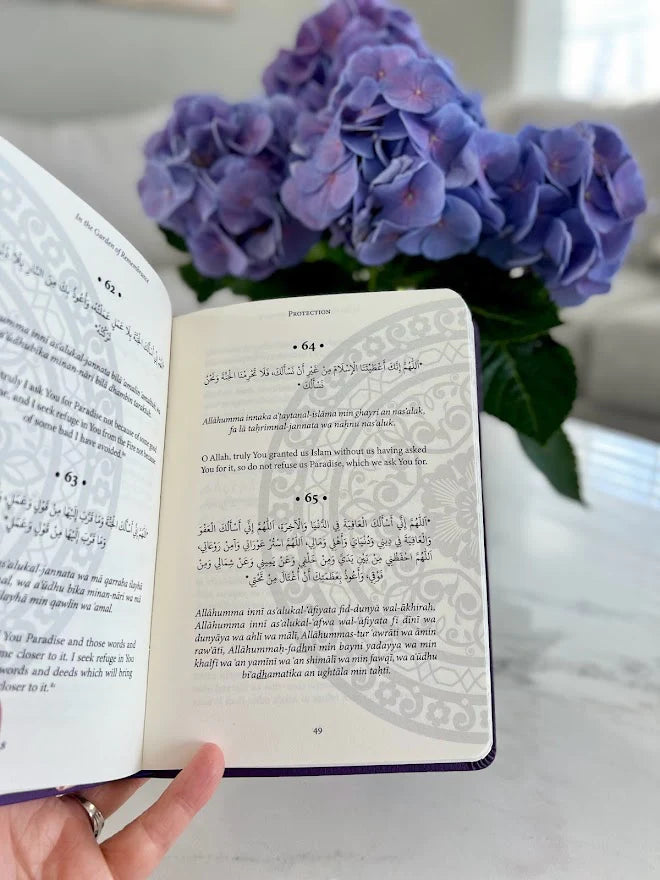 In the Garden of Remembrance
• 62 •
truly I ask You for Paradise not because of some good
e, and I seek refuge in You from the Fire not because
of some bad I have avoided
• 63 •
as'alukal-jannata wa mā qarraba ilayhā
wa a'ūdhu bika minan-nāri wa mā
layhā min qawlin wa 'amal.
You Paradise and those words and
me closer to it. I seek refuge in You
words and deeds which will bring
closer to it.
Protection
• 64 •
اَللّٰهُمَّ إِنَّكَ أَعْطَيْتَنَا الْإِسْلَامَ مِنْ غَيْرِ أَنْ نَسْأَلَكَ، فَلَا تَحْرِمْنَا الْجَنَّةَ وَنَحْنُ
نَسْأَلُكَ
Allāhumma innaka a'ṭaytanal-islāma min ghayri an nas'aluk,
fa lā taḥrimnal-jannata wa naḥnu nas'aluk.
O Allah, truly You granted us Islam without us having asked
You for it, so do not refuse us Paradise, which we ask You for.
• 65 •
اَللّٰهُمَّ إِنِّي أَسْأَلُكَ الْعَافِيَةَ فِي الدُّنْيَا وَالْآخِرَةِ، اَللّٰهُمَّ إِنِّي أَسْأَلُكَ الْعَفْوَ
وَالْعَافِيَةَ فِي دِينِي وَدُنْيَايَ وَأَهْلِي وَمَالِي، اَللّٰهُمَّ اسْتُرْ عَوْرَاتِي وَآمِنْ رَوْعَاتِي،
اَللّٰهُمَّ احْفَظْنِي مِنْ بَيْنِ يَدَيَّ وَمِنْ خَلْفِي وَعَنْ يَمِينِي وَعَنْ شِمَالِي وَمِنْ
فَوْقِي، وَأَعُوذُ بِعَظَمَتِكَ أَنْ أُغْتَالَ مِنْ تَحْتِي
Allāhumma innī as'alukal-'āfiyata fid-dunyā wal-ākhirah,
Allāhumma innī as'alukal-'afwa wal-'āfiyata fī dīnī wa
dunyāya wa ahlī wa mālī, Allāhummas-tur 'awrātī wa āmin
raw'ātī, Allāhummaḥ-faḍhnī min bayni yadayya wa min
khalfī wa 'an yamīnī wa 'an shimālī wa min fawqī, wa a'ūdhu
bi'aḍhamatika an ughtāla min taḥtī.
49